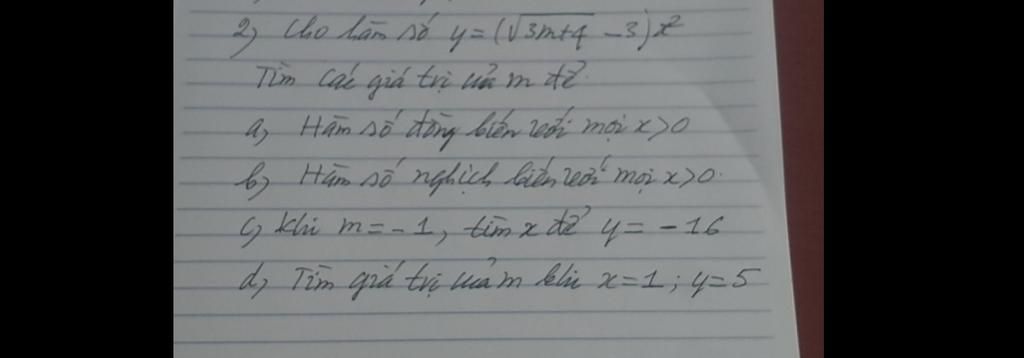 2, Cho hàm số y = (√3m+4 - 3)x²
Tìm các giá trị của m để.
a, Hàm số đồng biến với mọi x>0
b, Hàm số nghịch biến với mọi x>0.
c, Khi m = -1, tìm x để y = -16
d, Tìm giá trị của m khi x=1; y=5